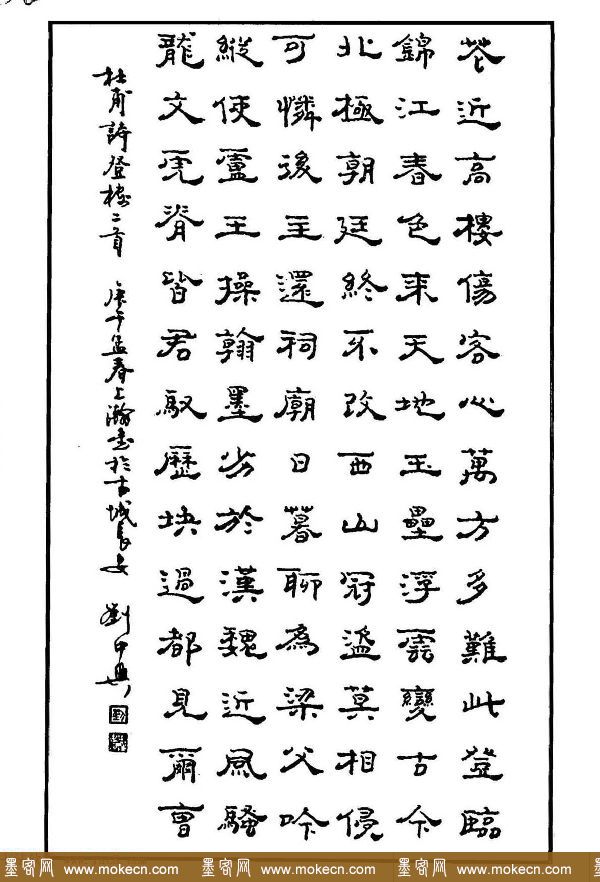 花近高樓傷客心萬方多難此登臨
錦江春色来天地玉壘浮雲變古今
北極朝廷終不改西山寇盗莫相侵
可憐後主還祠廟日暮聊為梁父吟
縱使盧王操翰墨劣於漢魏近風騷
龍文虎脊皆君馭歷塊過都見爾曹
杜甫詩登樓二首 庚午孟春上瀚書於古城長安 劉中興
墨客网 www.mokecn.com 墨客网 www.mokecn.com 墨客网 www.mokecn.com